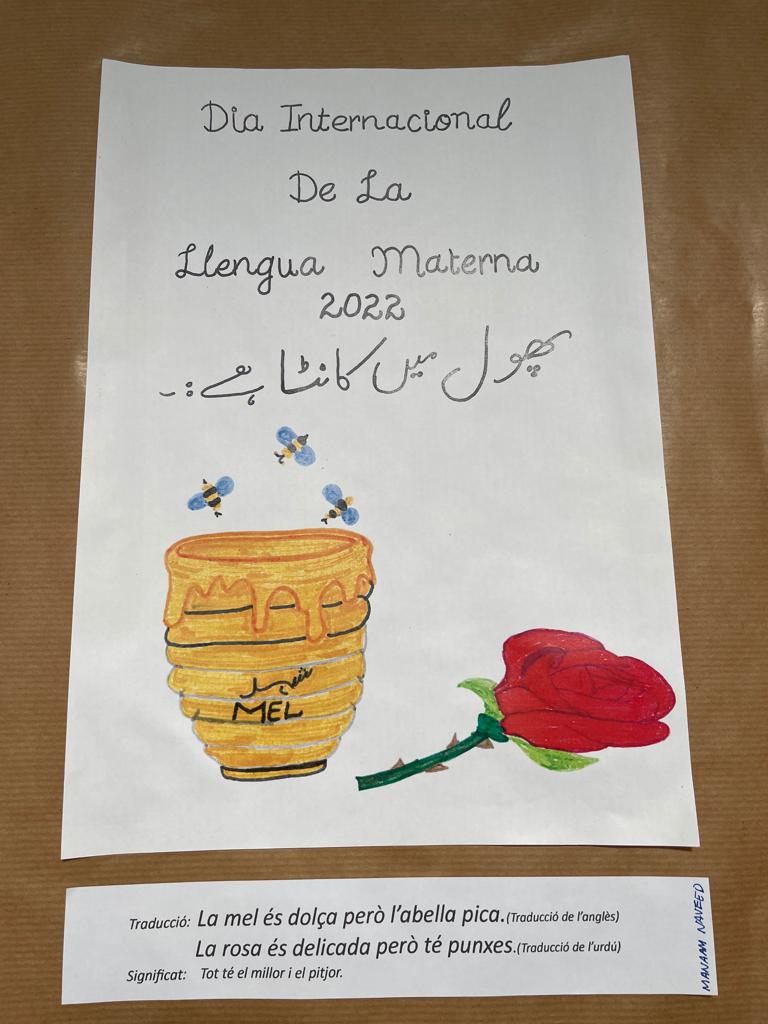 Dia Internacional
De La
Llengua Materna
2022
پھول میں کانٹا ہے :۔
شہد
MEL
Traducció: La mel és dolça però l'abella pica.(Traducció de l'anglès)
La rosa és delicada però té punxes.(Traducció de l'urdú)
Significat: Tot té el millor i el pitjor.
MANAAM NAVEED